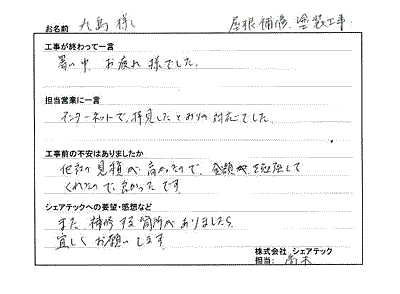 お名前 丸島 様 屋根補修、塗装工事
工事が終わって一言
暑い中、お疲れ様でした。
担当営業に一言
インターネットで、拝見したとおりの対応でした。
工事前の不安はありましたか
他社の見積が高かったので、金額が勉強して
くれたので良かったです
シェアテックへの要望・感想など
また、補修する箇所がありましたら
宜しくお願いします
株式会社 シェアテック
担当: 高木